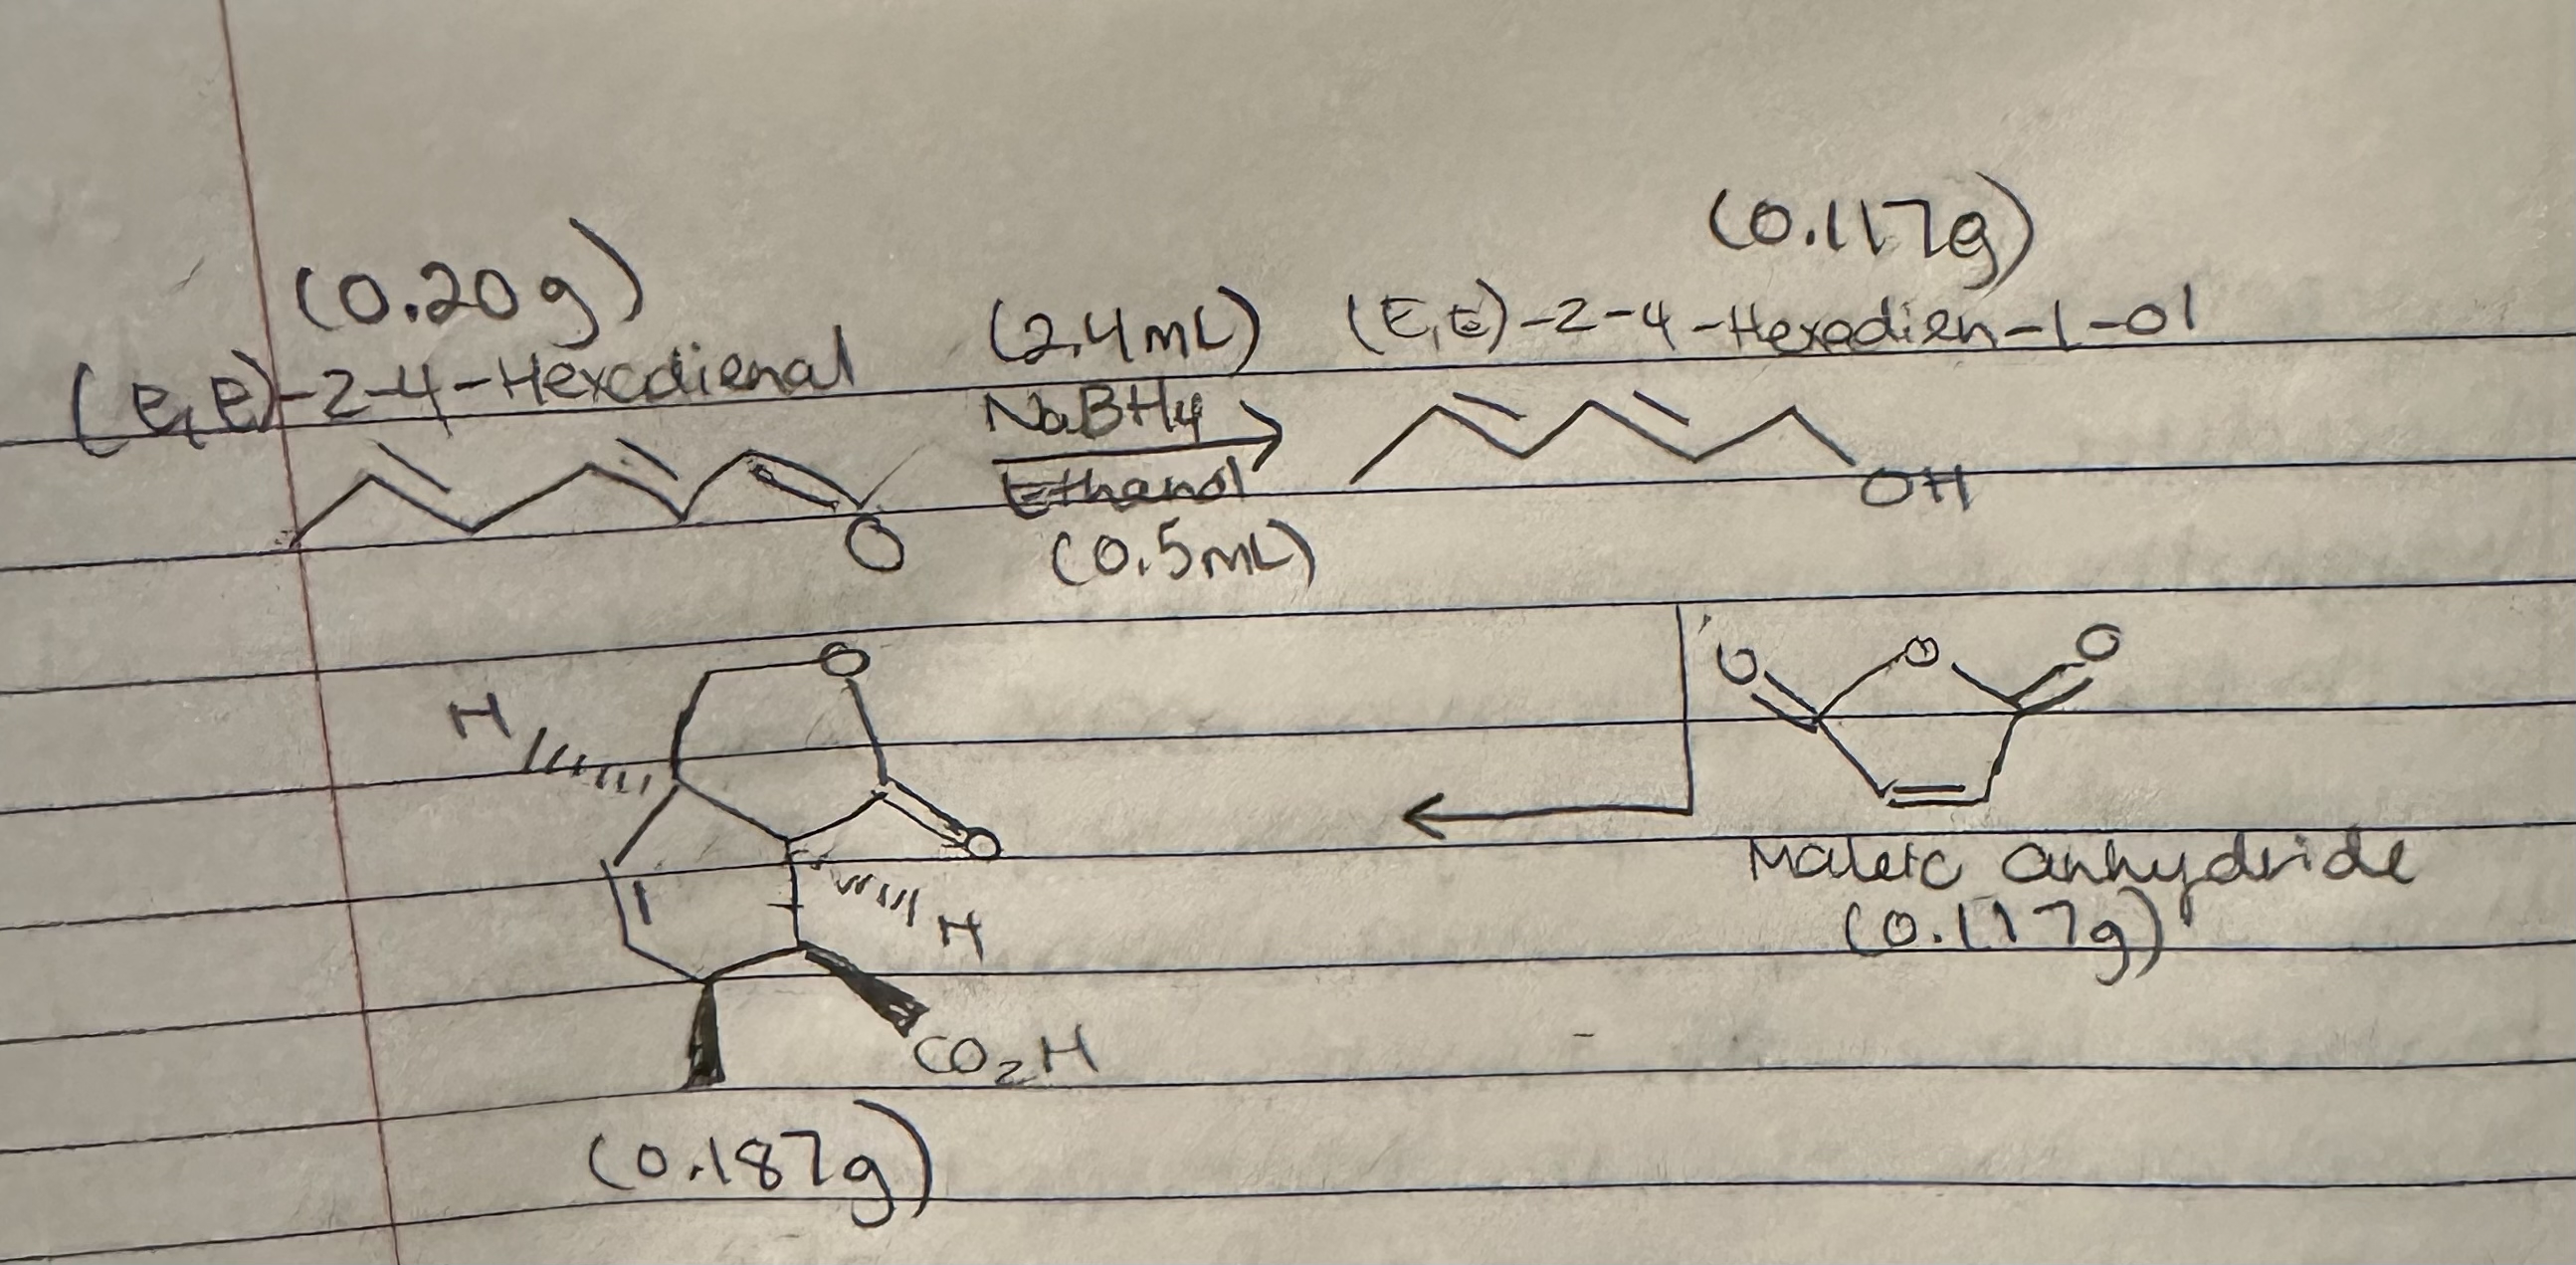 (0.117g)
(0.20g)
(2.4mL) (E,E)-2-4-Hexadien-1-ol
(E,E)-2-4-Hexadienal
NaBH4
OH
Ethanol
O
(0.5mL)
O O O
O
H
O
Maleic anhydride
(0.117g)
H
CO2H
(0.187g)